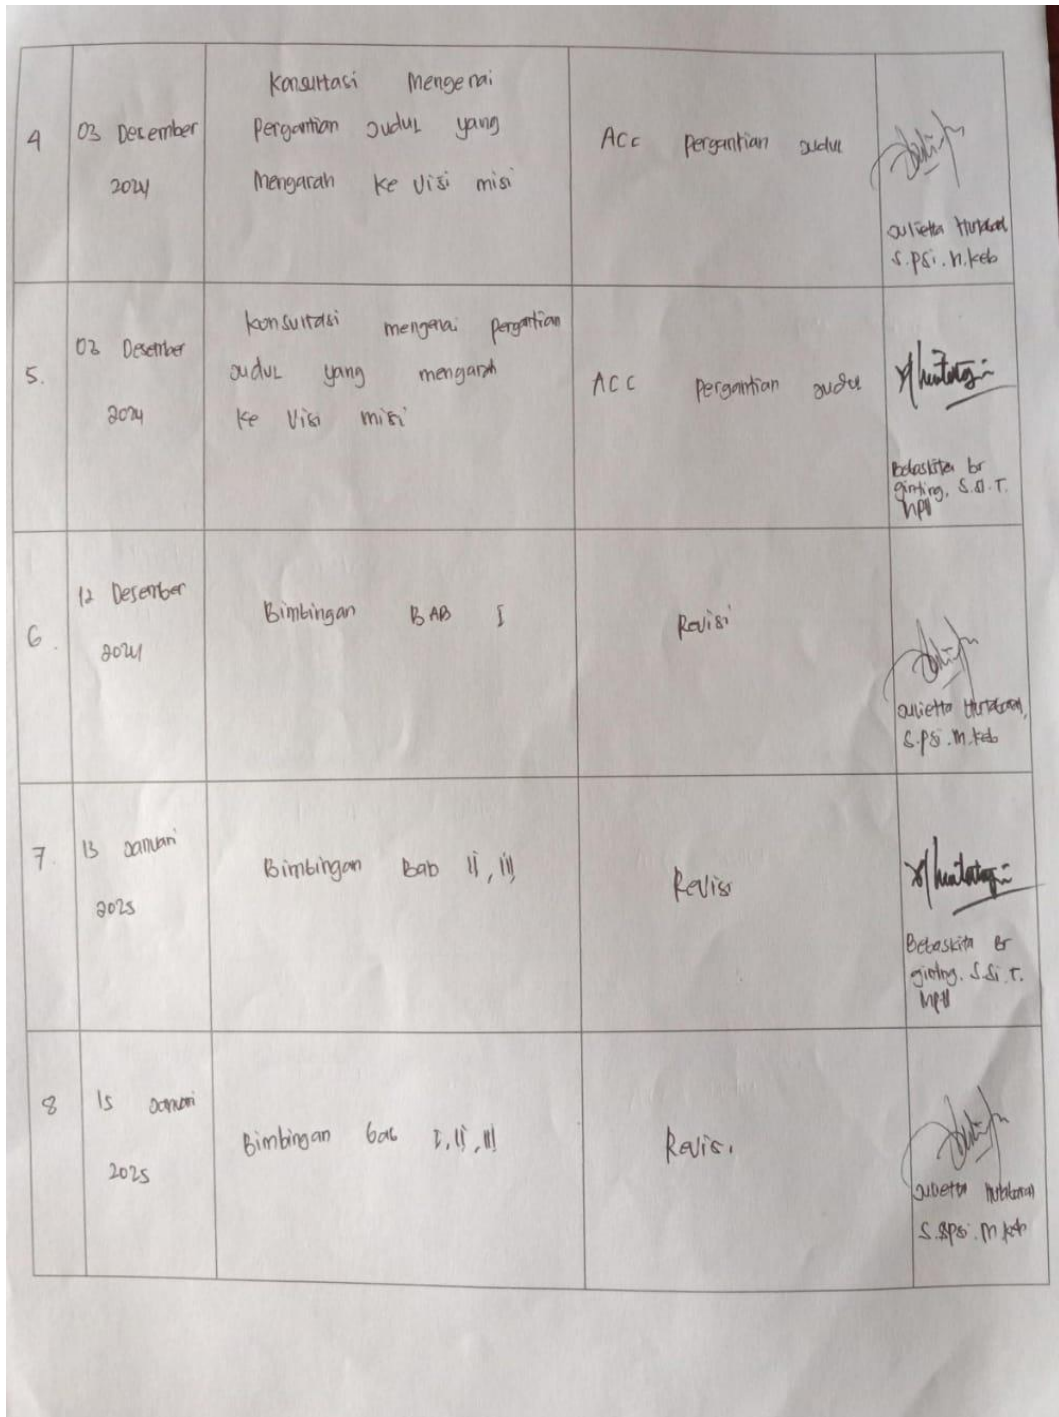 4
03 Desember
2024
Konsultasi Mengenai
Pergantian Judul yang
Mengarah ke Visi misi
ACC pergantian Judul
Julietta Hutabarat
S.Psi. M.Keb
5.
03 Desember
2024
Konsultasi mengenai pergantian
Judul yang mengarah
ke Visi misi
ACC pergantian Judul
Betaskita br
ginting, S.Si.T.
MPH
6.
12 Desember
2024
Bimbingan BAB I
Revisi
Julietta Hutabarat,
S.PSi. M.Keb
7.
13 Januari
2025
Bimbingan Bab II, III
Revisi
Bebaskita Br
ginting. S.Si.T.
MPH
8
15 Januari
2025
Bimbingan bab I, II, III
Revisi.
Julietta Hutabarat
S.SPsi. M.Keb